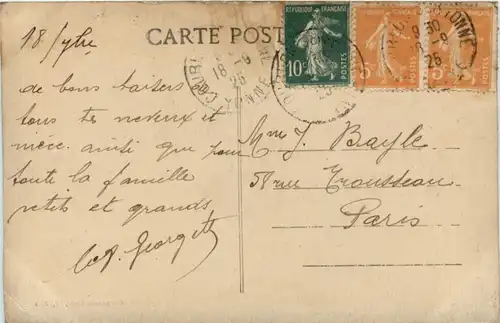 CARTE POSTALE
18/7bre
de bons baisers à
tous tes neveux et
nièce ainsi que pour
toute la famille
petits et grands
Georgette
REPUBLIQUE FRANÇAISE
10c
POSTES
18-9
25
9 30
18-9
25
YONNE
Mme J. Bayle
58 rue Trousseau
Paris